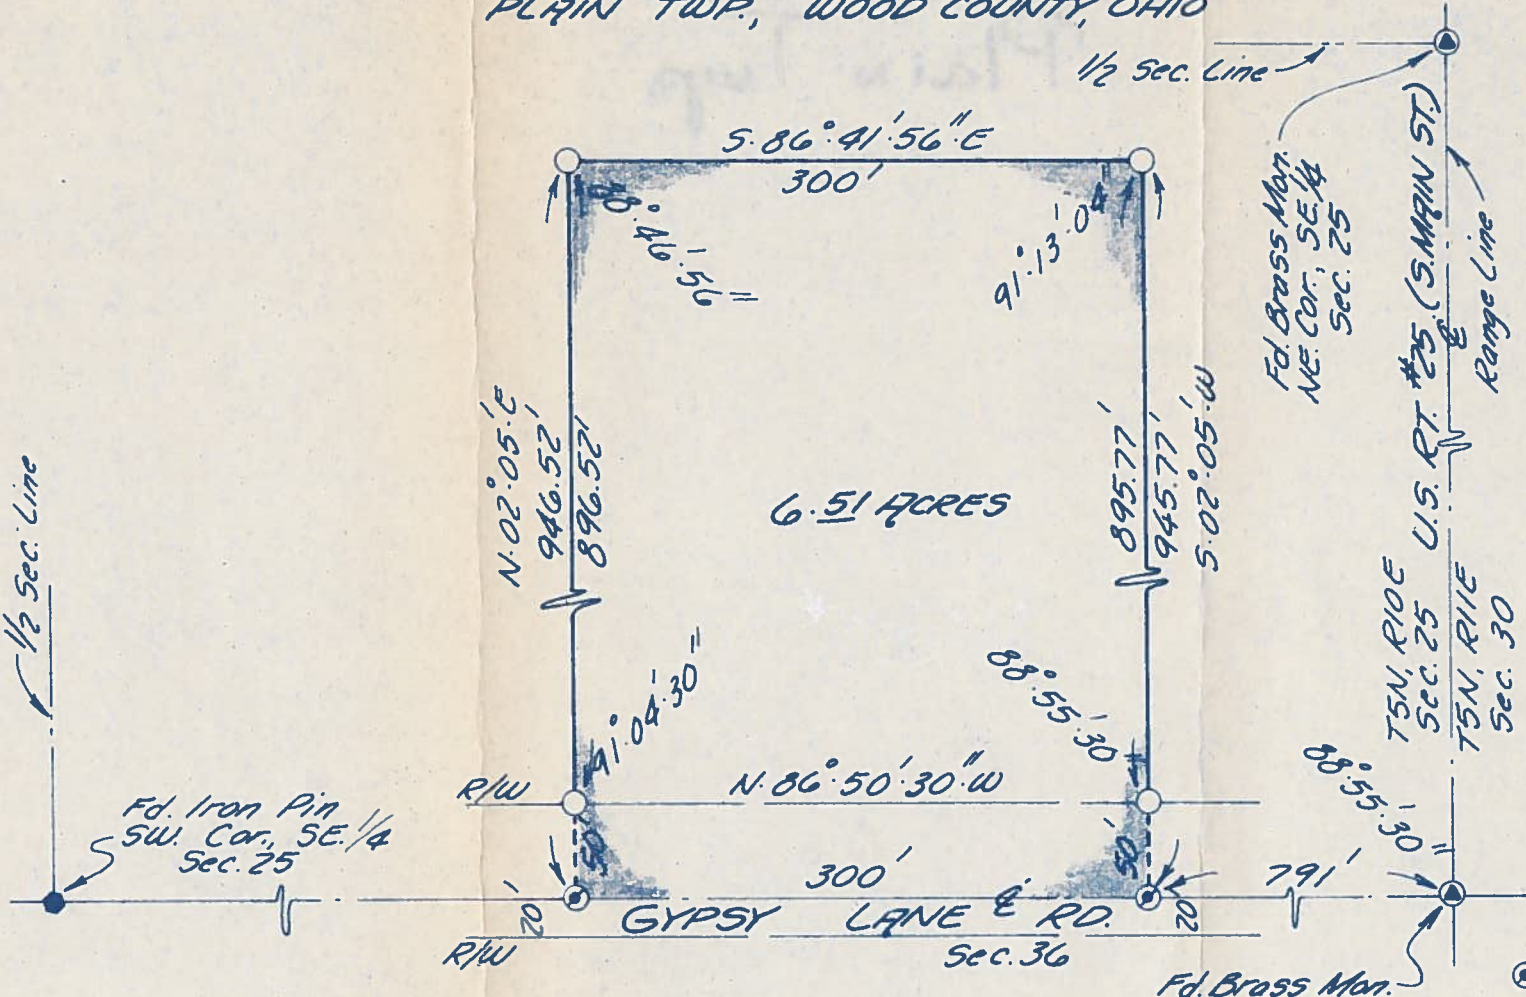 PLAIN TWP., WOOD COUNTY, OHIO
1/2 Sec. Line
S·86°·41'·56"·E
300'
88°·46'·56"
91°·13'·04"
Fd. Brass Mon.
NE. Cor., SE. 1/4
Sec. 25
U.S. RT. #25 (S. MAIN ST.)
℄
Range Line
N·02°·05'·E
946.52'
896.52'
6.51 ACRES
895.77'
945.77'
S·02°·05'·W
1/2 Sec. Line
T5N, R10E
Sec. 25
T5N, R11E
Sec. 30
91°·04'·30"
88°·55'·30"
88°·55'·30"
R/W
N·86°·50'·30"·W
Fd. Iron Pin
SW. Cor., SE. 1/4
Sec. 25
50'
50'
300'
791'
20'
GYPSY LANE ℄ RD.
20'
R/W
Sec. 36
Fd. Brass Mon.